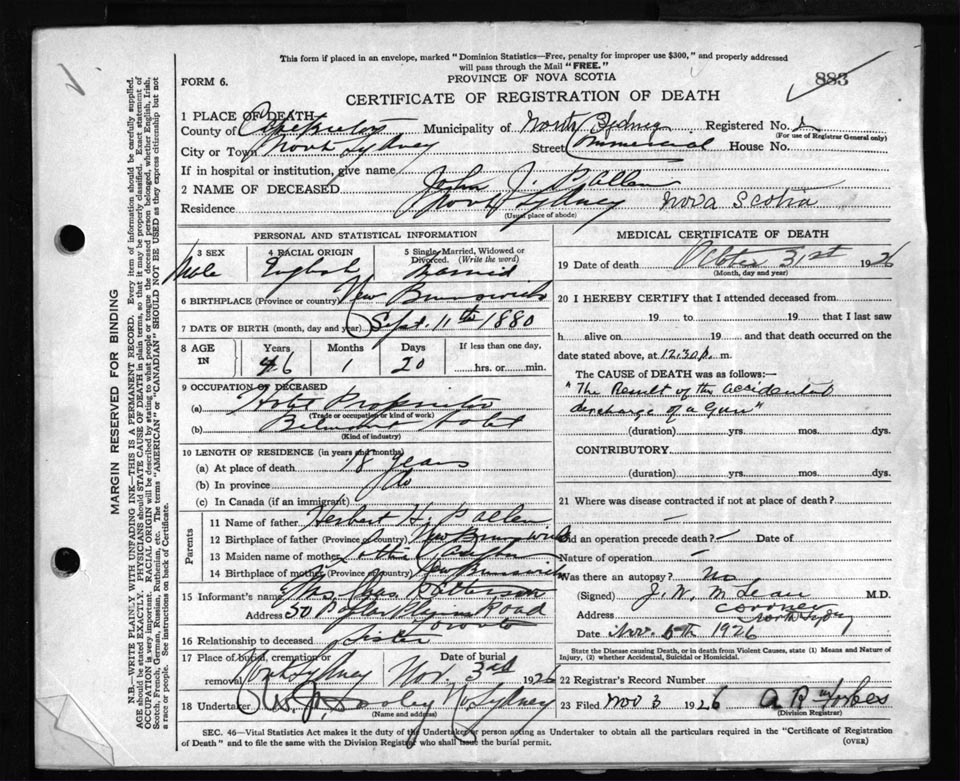 This form if placed in an envelope, marked "Dominion Statistics—Free, penalty for improper use $300," and properly addressed
will pass through the Mail "FREE."
FORM 6.
PROVINCE OF NOVA SCOTIA
883
CERTIFICATE OF REGISTRATION OF DEATH
1 PLACE OF DEATH
County of Cape Breton Municipality of North Sydney Registered No.
(For use of Registrar General only)
City or Town North Sydney Street Commercial House No.
If in hospital or institution, give name
2 NAME OF DECEASED John J. Pallen
Residence North Sydney Nova Scotia
(Usual place of abode)
PERSONAL AND STATISTICAL INFORMATION
3 SEX 4 RACIAL ORIGIN 5 Single, Married, Widowed or Divorced. (Write the word)
Male English Married
6 BIRTHPLACE (Province or country) New Brunswick
7 DATE OF BIRTH (month, day and year) Sept. 11th 1880
8 AGE IN Years Months Days If less than one day,
46 1 20 hrs. or min.
9 OCCUPATION OF DECEASED
(a) Hotel Proprietor
(Trade or occupation or kind of work)
(b) Hotel
(Kind of industry)
10 LENGTH OF RESIDENCE (in years and months)
(a) At place of death 18 years
(b) In province do
(c) In Canada (if an immigrant)
Parents
11 Name of father Herbert H. Pallen
12 Birthplace of father (Province or country) New Brunswick
13 Maiden name of mother
14 Birthplace of mother (Province or country) New Brunswick
15 Informant's name Mrs. Chas.
Address 50 Road
Toronto
16 Relationship to deceased Sister
17 Place of burial, cremation or removal Date of burial
North Sydney Nov. 3rd 1926
18 Undertaker Dooley N. Sydney
(Name and address)
MEDICAL CERTIFICATE OF DEATH
19 Date of death October 31st 1926
(Month, day and year)
20 I HEREBY CERTIFY that I attended deceased from
19 to 19 that I last saw
h alive on 19 and that death occurred on the
date stated above, at 12.30 p. m.
The CAUSE of DEATH was as follows:—
"The Result of the accidental
discharge of a Gun"
(duration) yrs. mos. dys.
CONTRIBUTORY
(duration) yrs. mos. dys.
21 Where was disease contracted if not at place of death?
Did an operation precede death? — Date of
Nature of operation —
Was there an autopsy? No
(Signed) J. W. McLean M.D.
Coroner
Address North Sydney
Date Nov. 1926
State the Disease causing Death, or in death from Violent Causes, state (1) Means and Nature of
Injury, (2) whether Accidental, Suicidal or Homicidal.
22 Registrar's Record Number
23 Filed Nov 3 1926 A R Forbes
(Division Registrar)
SEC. 46—Vital Statistics Act makes it the duty of the Undertaker or person acting as Undertaker to obtain all the particulars required in the "Certificate of Registration
of Death" and to file the same with the Division Registrar who shall issue the burial permit.
(OVER)
MARGIN RESERVED FOR BINDING
N.B.—WRITE PLAINLY WITH UNFADING INK—THIS IS A PERMANENT RECORD. Every item of information should be carefully supplied.
AGE should be stated EXACTLY. PHYSICIANS should STATE CAUSE OF DEATH in plain terms, so that it may be properly classified. Exact statement of
OCCUPATION is very important. RACIAL ORIGIN will be described by stating to what people or tongue the deceased person belonged, whether English, Irish,
Scotch, French, German, Russian, Ruthenian, etc. The terms "AMERICAN" or "CANADIAN" SHOULD NOT BE USED as they express citizenship but not
a race or people. See instructions on back of Certificate.